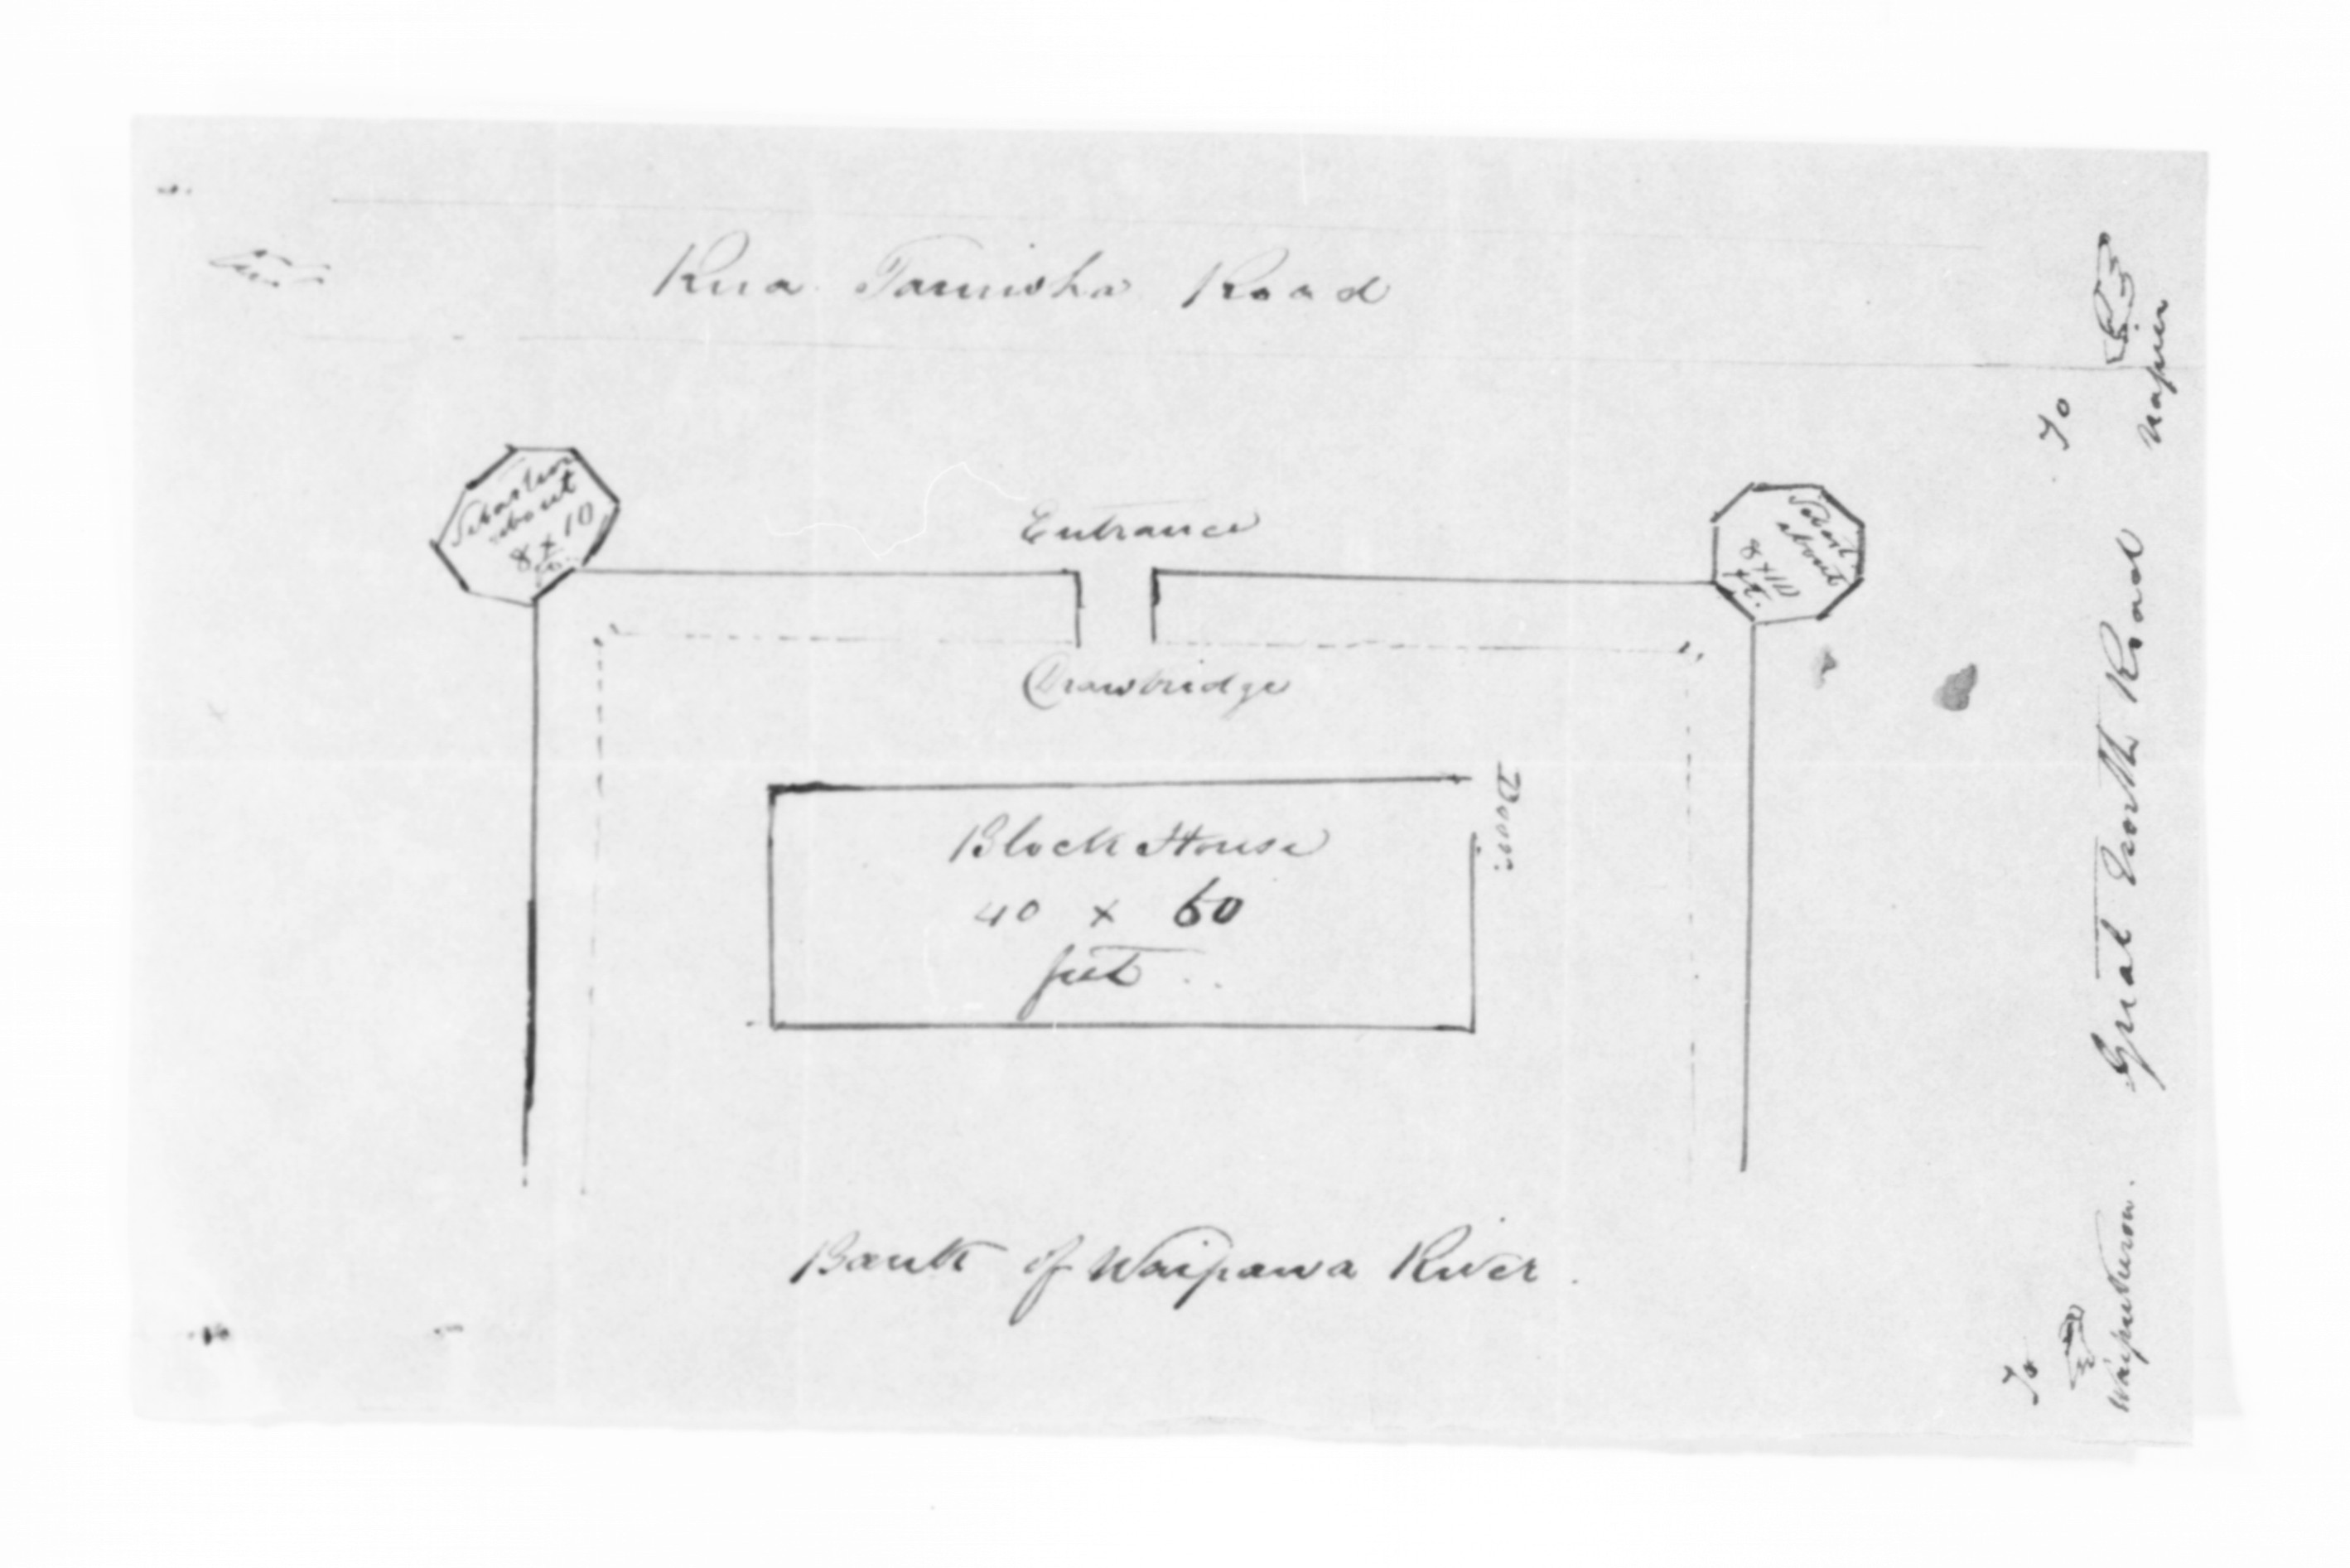 Rua Taniwha Road
Sebastion
about
8 x 10
ft.
Entrance
about
8 x 10
ft.
Drawbridge
Door
Block House
40 x 60
feet
Bank of Waipawa River.
To
Napier
Great North Road
To
Waipukurau.